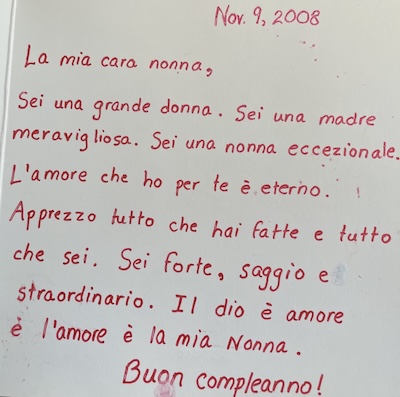 Nov. 9, 2008
La mia cara nonna,
Sei una grande donna. Sei una madre
meravigliosa. Sei una nonna eccezionale.
L'amore che ho per te è eterno. !
Apprezzo tutto che hai fatte e tutto
che sei. Sei forte, saggio e
straordinario. Il dio è amore
è l'amore è la mia Nonna.
Buon compleanno!